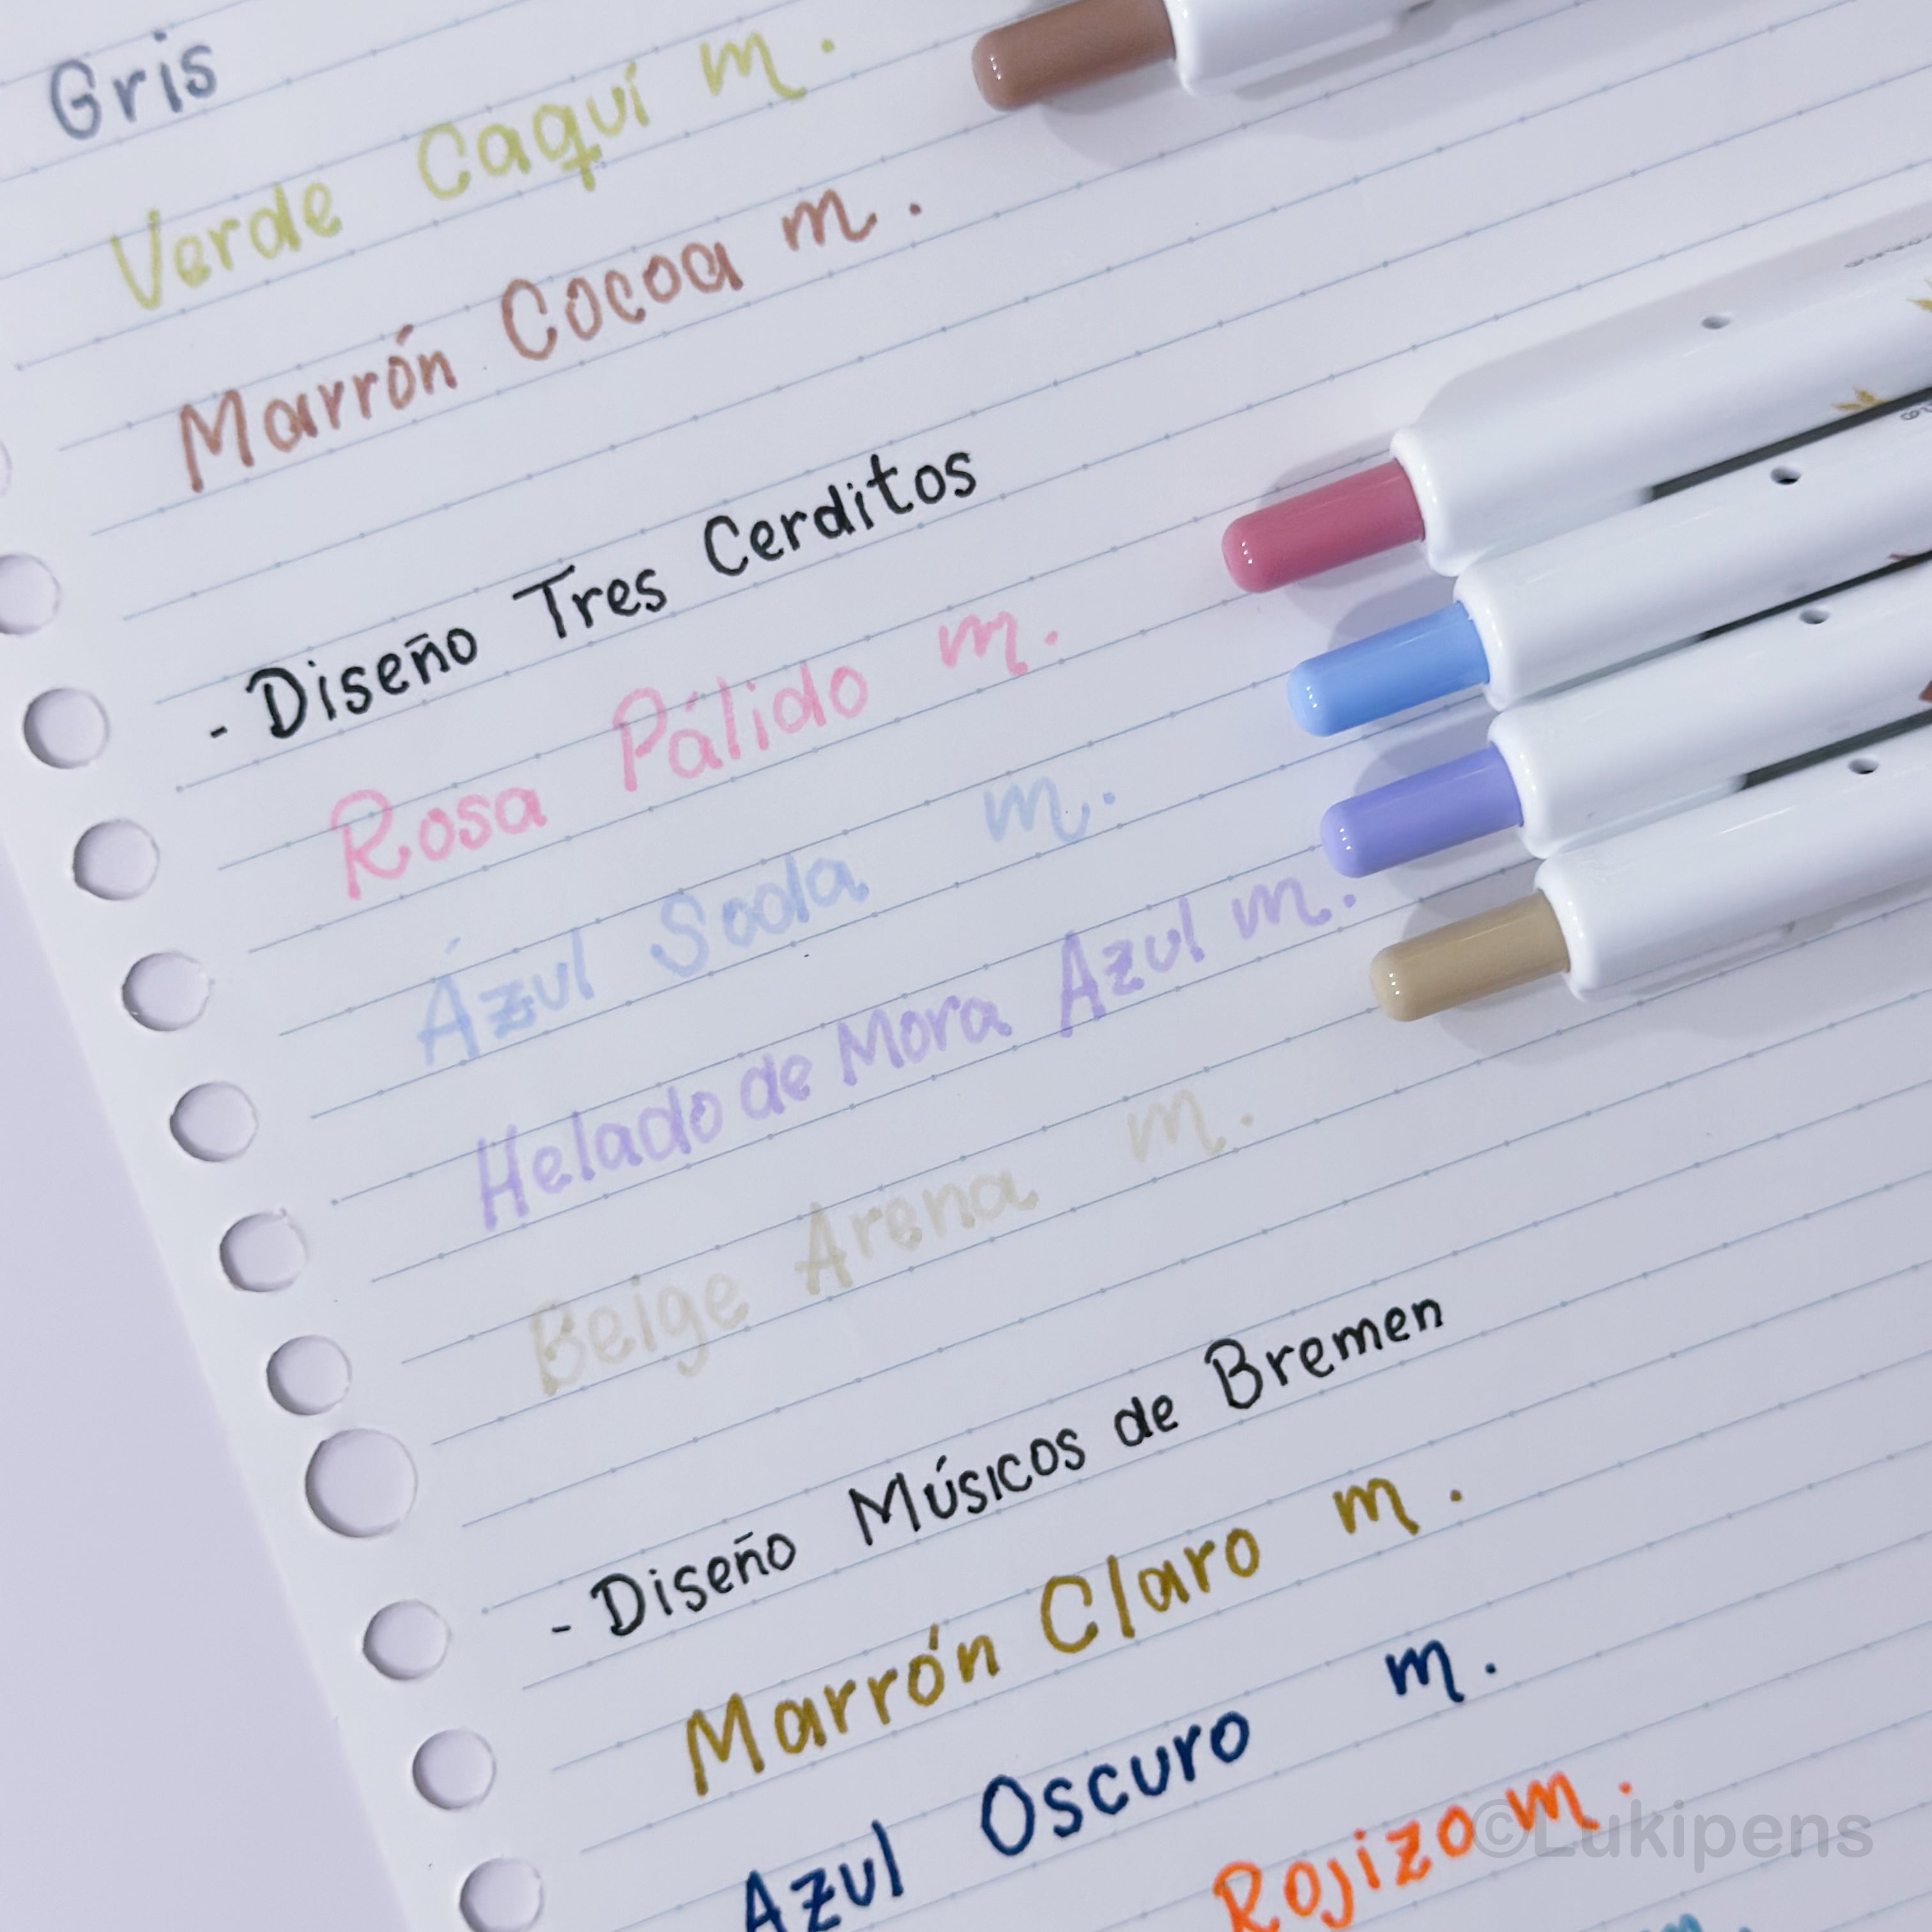 Gris
Verde Caquí m.
Marrón Cocoa m.
- Diseño Tres Cerditos
Rosa Pálido m.
Ázul Soda m.
Helado de Mora Azul m.
Beige Arena m.
- Diseño Músicos de Bremen
Marrón Claro m.
Azul Oscuro m.
Rojizo m.
©Lukipens